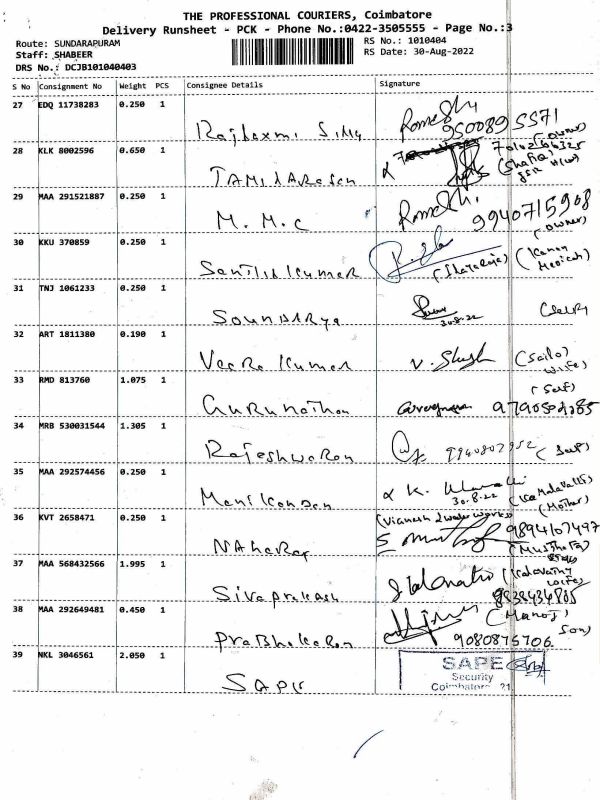 THE PROFESSIONAL COURIERS, Coimbatore
Delivery Runsheet - PCK - Phone No.:0422-3505555 - Page No.:3
Route: SUNDARAPURAM
RS No.: 1010404
Staff: SHABEER
RS Date: 30-Aug-2022
DRS No.: DCJB101040403
S No Consignment No Weight PCS Consignee Details Signature
27 EDQ 11738283 0.250 1
Rajlaxmi
95008 95571
(owner)
28 KLK 8002596 0.650 1
TAMILARASAN
29 MAA 291521887 0.250 1
M.M.C
9940715908
(owner)
30 KKU 370859 0.250 1
Senthil Kumar
31 TNJ 1061233 0.250 1
SOUNDARYA
30.8.22
32 ART 1811380 0.190 1
Veera Kumar
wife)
33 RMD 813760 1.075 1
(Self)
Gurunathan
34 MRB 530031544 1.305 1
Rajeshwaran
9940807952
(Self)
35 MAA 292574456 0.250 1
Manikandan
30.8.22
(Mother)
36 KVT 2658471 0.250 1
9894107497
37 MAA 568432566 1.995 1
Sivaprakash
wife)
38 MAA 292649481 0.450 1
(Manoj
Son)
Prabhakaran
9080875706
39 NKL 3046561 2.050 1
SAPE
SAPE
Security
Coimbatore 21